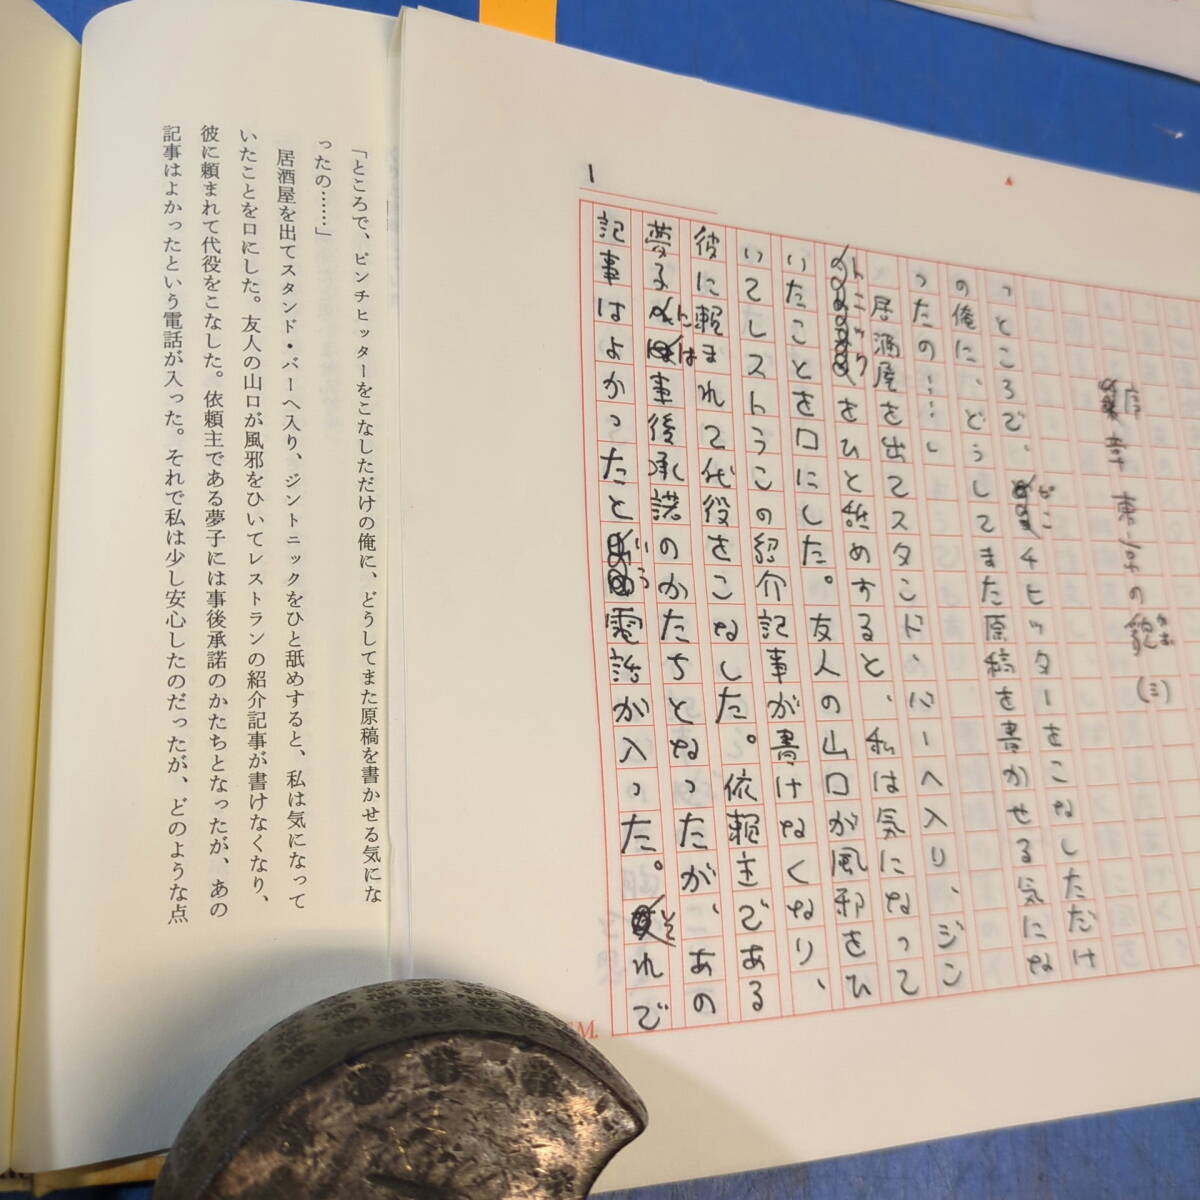 1
序章 東京の貌 (三)
かお
「ところで、ピンチヒッターをこなしただけ
の俺に、どうしてまた原稿を書かせる気にな
ったの……」
居酒屋を出てスタンド・バーへ入り、ジン
トニックをひと舐めすると、私は気になって
いたことを口にした。友人の山口が風邪をひ
いてレストランの紹介記事が書けなくなり、
彼に頼まれて代役をこなした。依頼主である
夢子には事後承諾のかたちとなったが、あの
記事はよかったという電話が入った。それで
「ところで、ピンチヒッターをこなしただけの俺に、どうしてまた原稿を書かせる気にな
ったの……」
居酒屋を出てスタンド・バーへ入り、ジントニックをひと舐めすると、私は気になって
いたことを口にした。友人の山口が風邪をひいてレストランの紹介記事が書けなくなり、
彼に頼まれて代役をこなした。依頼主である夢子には事後承諾のかたちとなったが、あの
記事はよかったという電話が入った。それで私は少し安心したのだったが、どのような点
M.